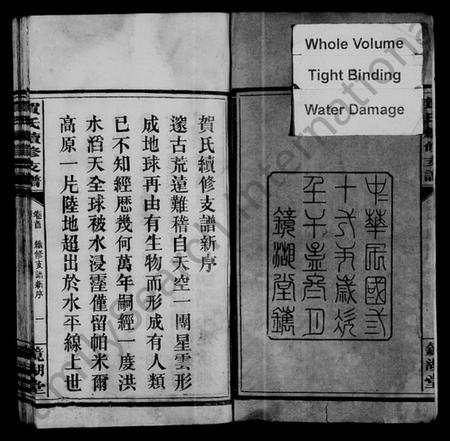 Whole Volume
Tight Binding
Water Damage
中華民國三
十
年
歲次
壬午孟
月
鏡湖堂鐫
賀氏續修支譜
鏡湖堂
賀氏續修支譜新序
邃古荒遠難稽自天空一團星雲形
成地球再由有生物而形成有人類
已不知經歷幾何萬年嗣經一度洪
水滔天全球被水浸霪僅留帕米爾
高原一片陸地超出於水平線上世
賀氏續修支譜
卷首
續修支譜新序
一
鏡湖堂